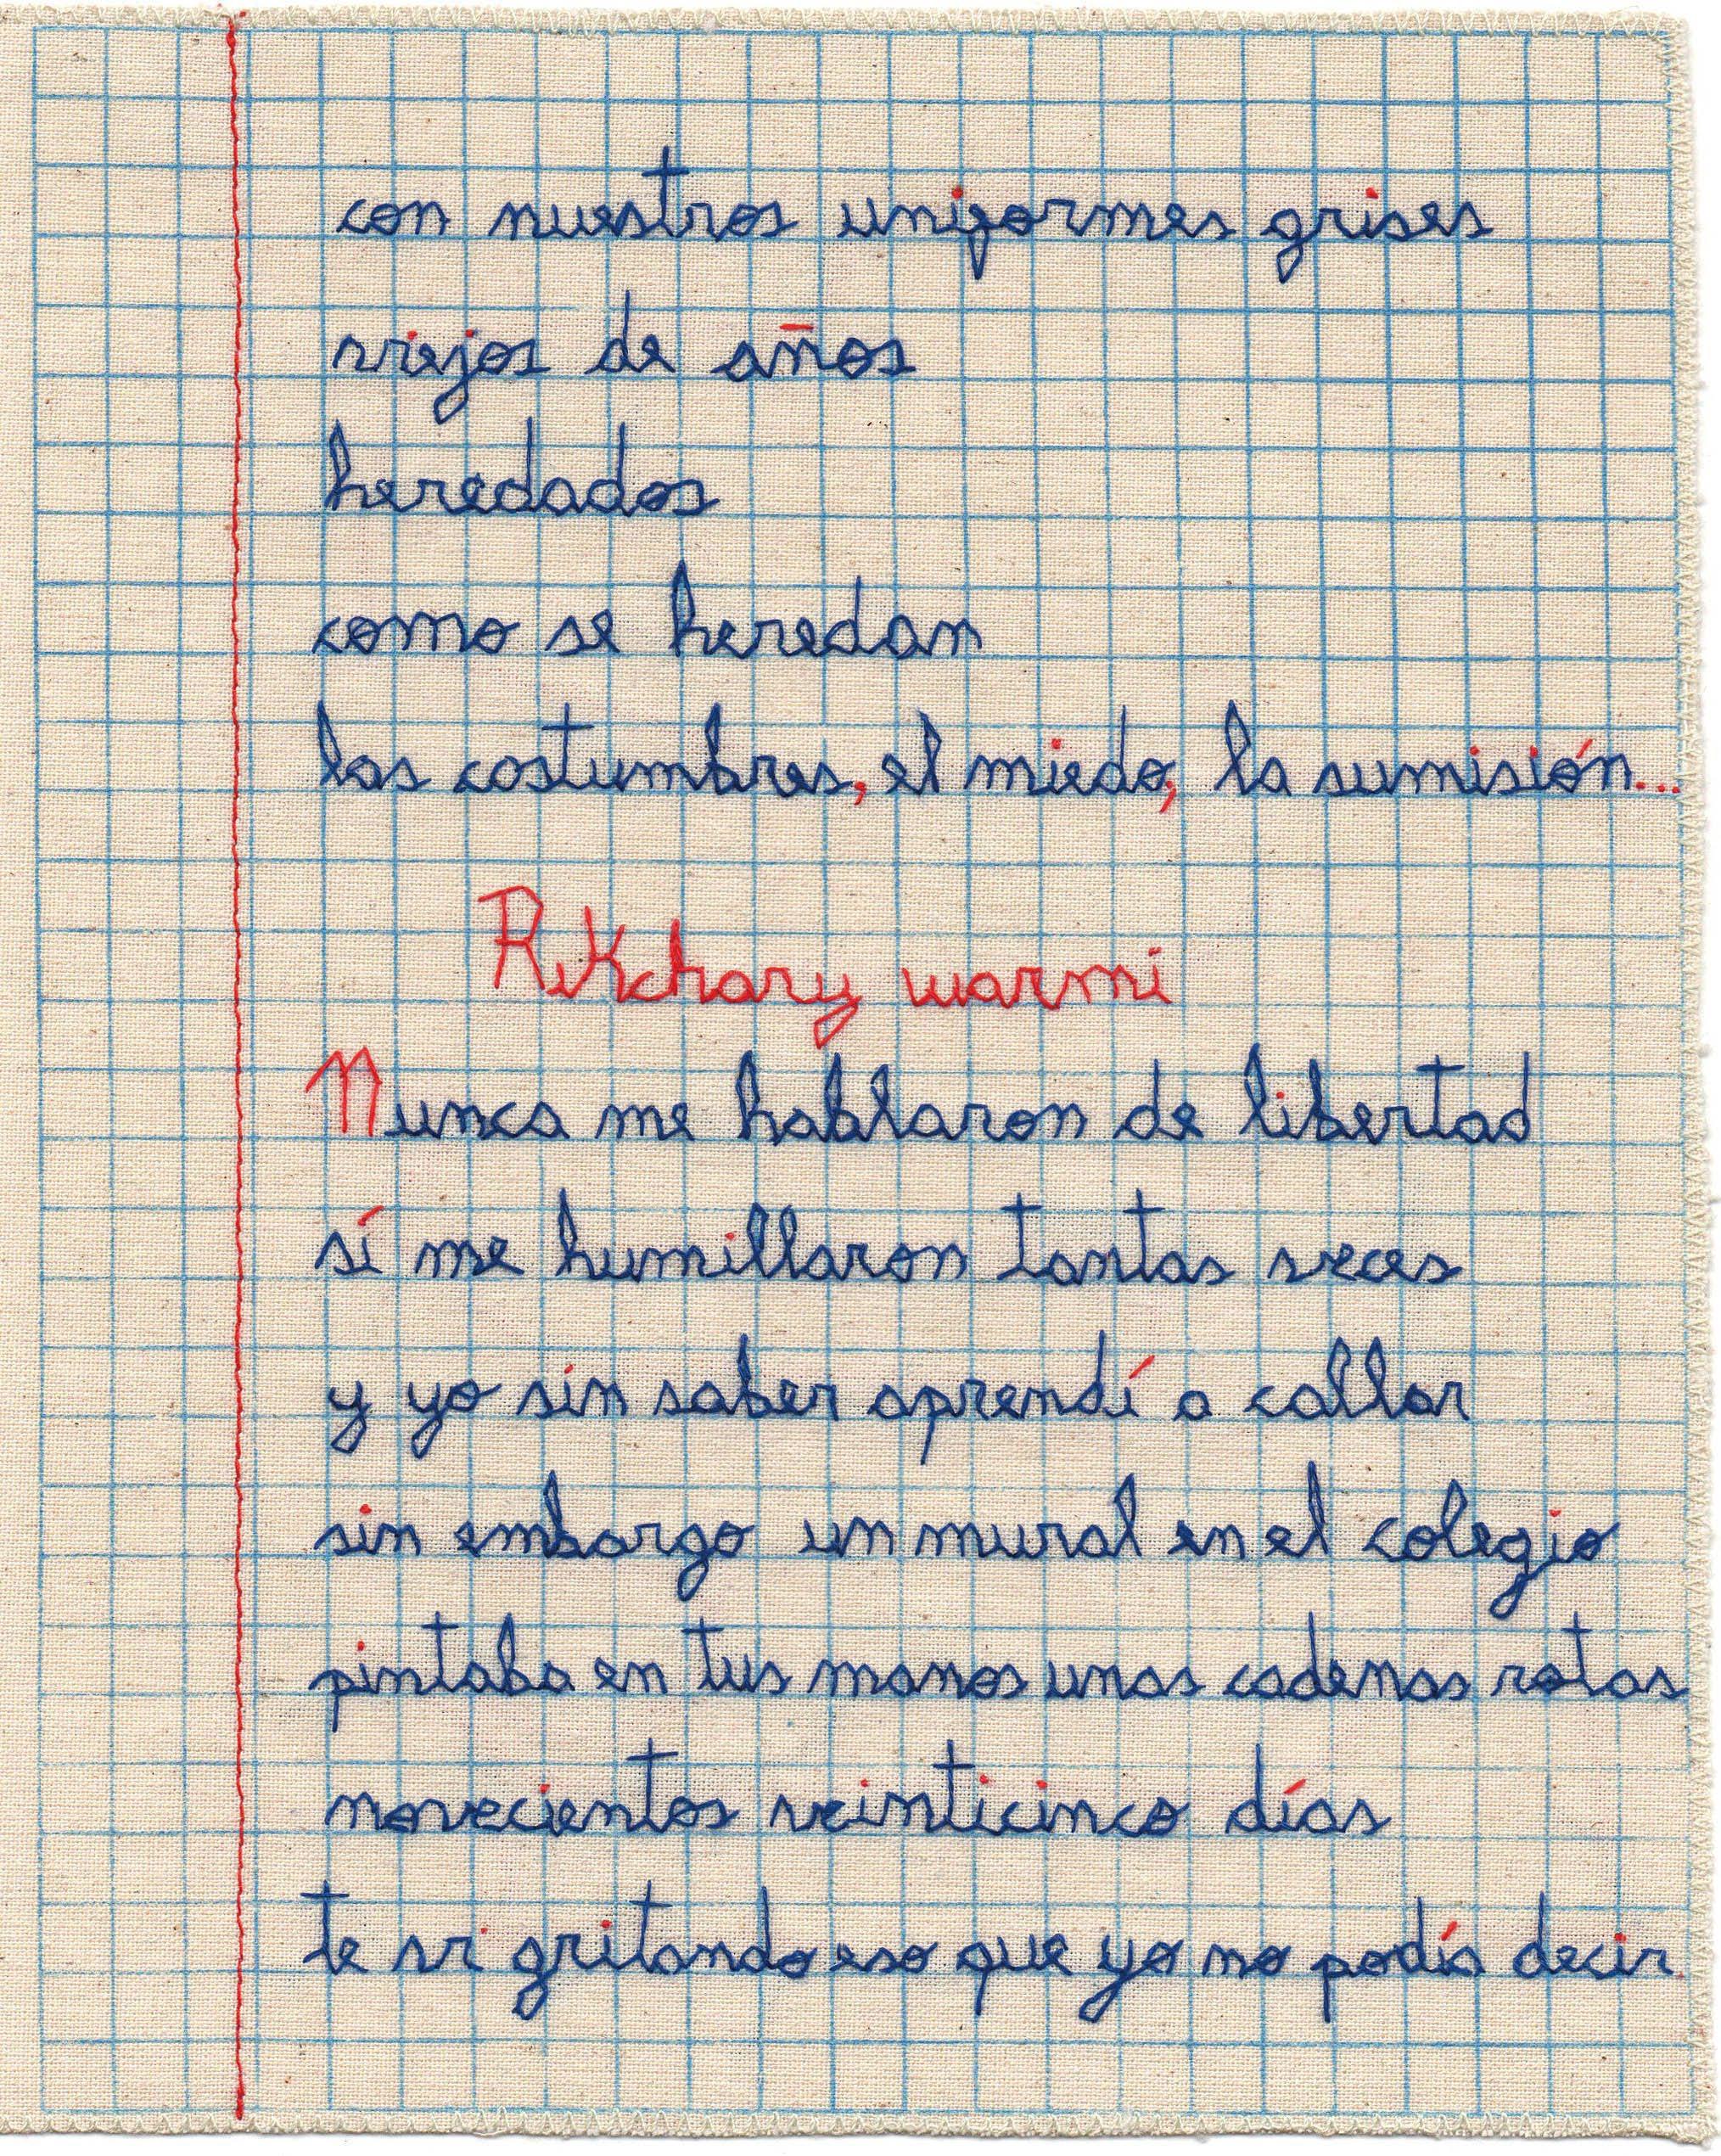 con nuestros uniformes grises
viejos de años
heredados
como se heredan
las costumbres, el miedo, la sumisión...
Rikchary warmi
Nunca me hablaron de libertad
sí me humillaron tantas veces
y yo sin saber aprendí a callar
sin embargo un mural en el colegio
pintaba en tus manos unas cadenas rotas
novecientos veinticinco días
te vi gritando eso que yo no podía decir.